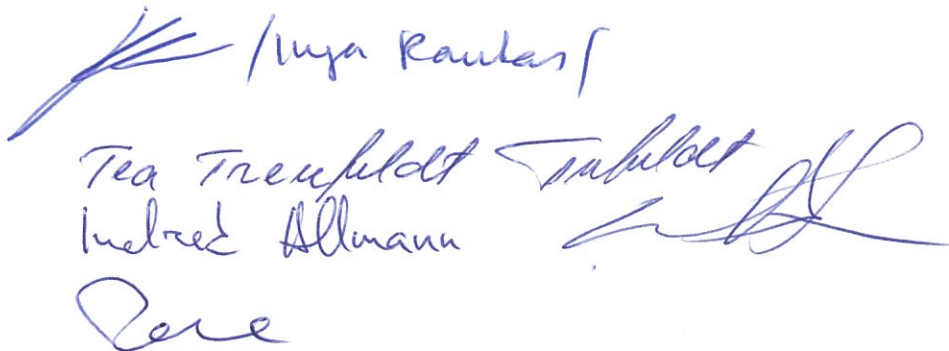 /Inga Raukas/
Tea Treufeldt Treufeldt
Indrek Allmann